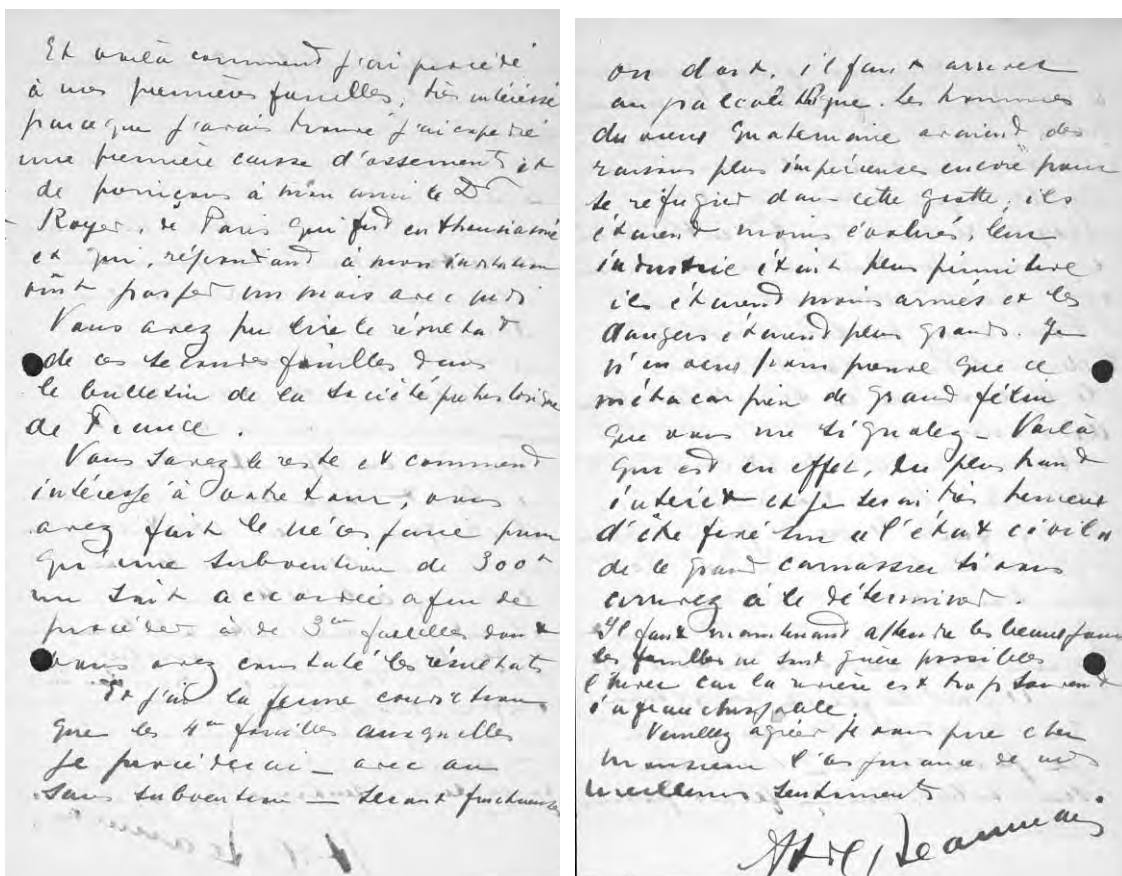 Et voilà comment j'ai procédé
à mes premières fouilles, très intéressé
parceque j'avais trouvé j'ai expédié
une première caisse d'ossements et
de poinçons à mon ami le Dr
Royer, de Paris qui fut enthousiasmé
et qui, répondant à mon invitation
vint passer un mois avec moi
Vous avez pu lire le résultat
de ces secondes fouilles dans
le bulletin de la Société préhistorique
de France.
Vous savez le reste et comment
intéressé à votre tour, vous
avez fait le nécessaire pour
qu'une subvention de 300
me soit accordée afin de
procéder à de 3es fouilles dont
vous avez constaté les résultats
Et j'ai la ferme conviction
que les 4es fouilles auxquelles
je procéderai _ avec ou
sans subvention _ seront fructueuses
on doit, il faut arriver
au paléolithique. Les hommes
du vieux quaternaire avaient des
raisons plus impérieuses encore pour
se réfugier dans cette grotte; ils
étaient moins évolués, leur
industrie était plus primitive
ils étaient moins armés et les
dangers étaient plus grands. Je
n'en veux pour preuve que ce
métacarpien de grand félin
que vous me signalez _ Voilà
qui est en effet, du plus haut
intérêt et je serai très heureux
d'être fixé sur "l'état civil"
de ce grand carnassier si vous
arrivez à le déterminer.
Il faut maintenant attendre les beaux jours
les fouilles ne sont guère possibles
l'hiver car la rivière est trop souvent
infranchissable.
Veuillez agréer je vous prie cher
monsieur l'assurance de mes
meilleurs sentiments
Jeannin